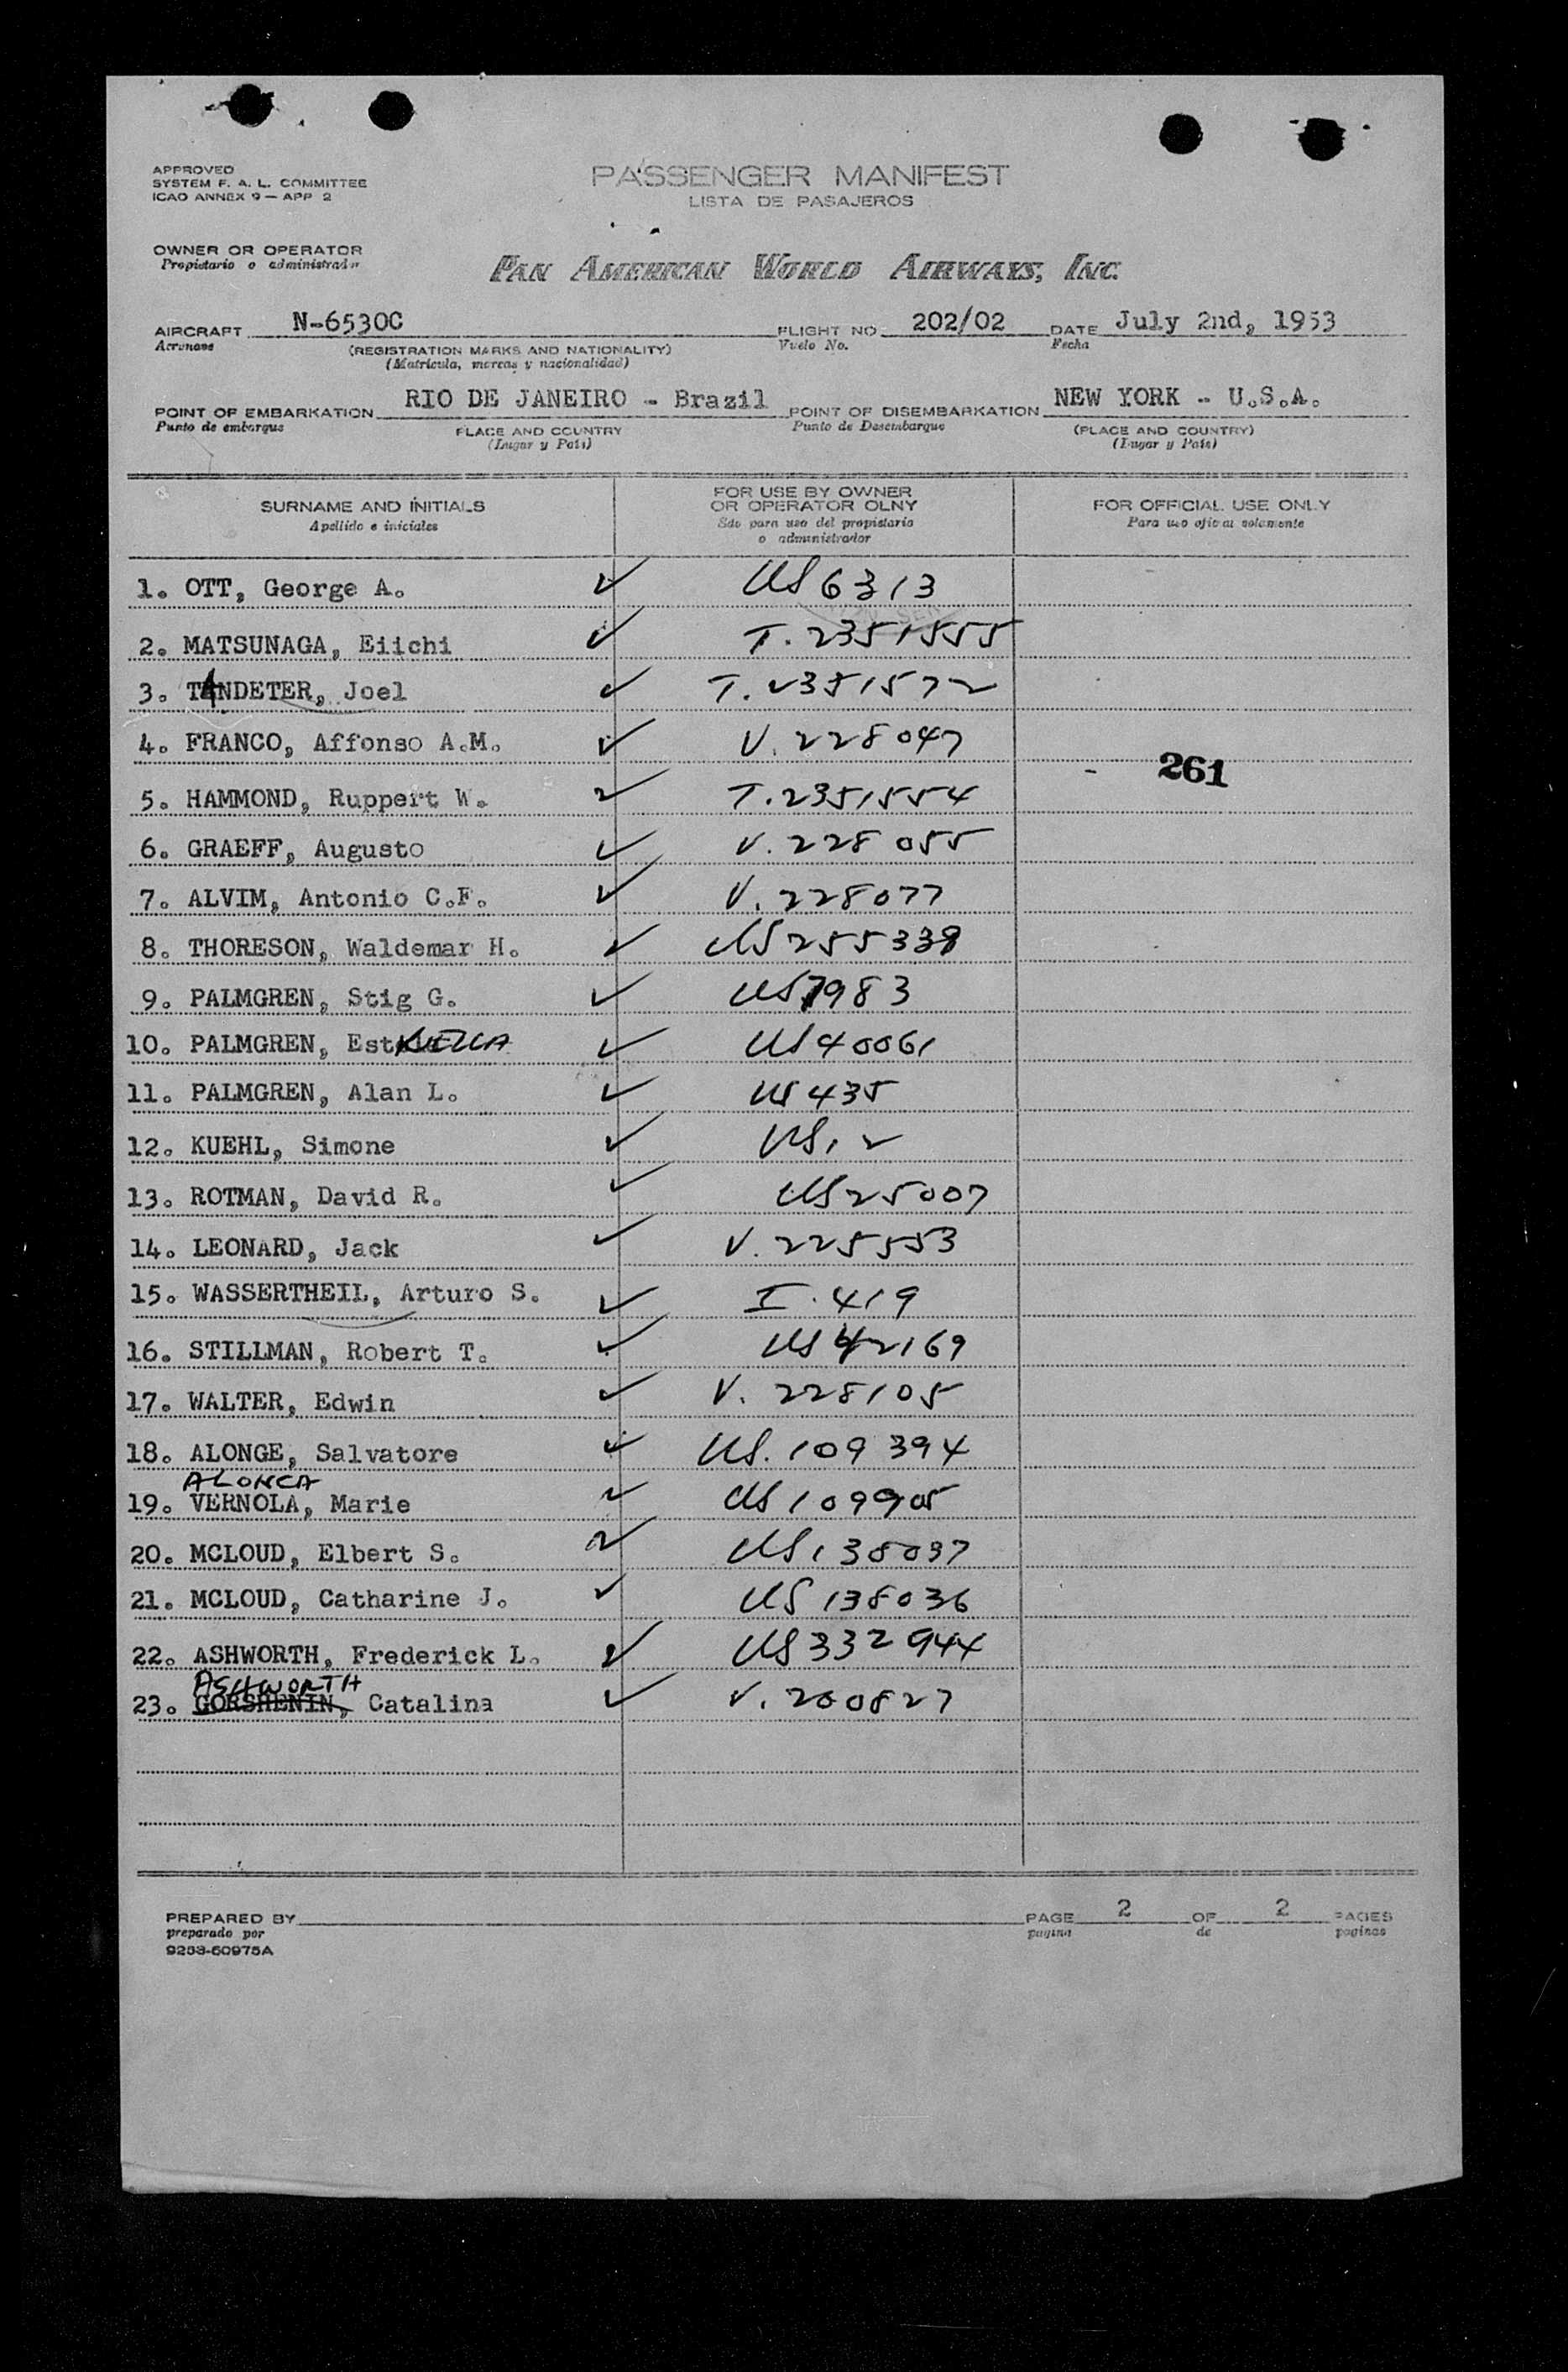 APPROVED
SYSTEM F. A. L. COMMITTEE
ICAO ANNEX 9 — APP 2
PASSENGER MANIFEST
LISTA DE PASAJEROS
OWNER OR OPERATOR
Propietario o administrador
PAN AMERICAN WORLD AIRWAYS, INC.
AIRCRAFT N-6530C FLIGHT NO. 202/02 DATE July 2nd, 1953
Aeronave (REGISTRATION MARKS AND NATIONALITY) Vuelo No. Fecha
(Matricula, marcas y nacionalidad)
POINT OF EMBARKATION RIO DE JANEIRO - Brazil POINT OF DISEMBARKATION NEW YORK - U.S.A.
Punto de embarque PLACE AND COUNTRY Punto de Desembarque (PLACE AND COUNTRY)
(Lugar y Pais) (Lugar y Pais)
SURNAME AND INITIALS FOR USE BY OWNER FOR OFFICIAL USE ONLY
OR OPERATOR OLNY
Apellido e iniciales Sdo para uso del propietario Para uso oficial solamente
o administrador
1. OTT, George A. US 6313
2. MATSUNAGA, Eiichi T. 2351555
3. TANDETER, Joel T. 2351572
4. FRANCO, Affonso A.M. V. 228047
- 261
5. HAMMOND, Ruppert W. T. 2351554
6. GRAEFF, Augusto V. 228 055
7. ALVIM, Antonio C.F. V. 228077
8. THORESON, Waldemar H. US 255339
9. PALMGREN, Stig G. US 7983
10. PALMGREN, US 40061
11. PALMGREN, Alan L. US 435
12. KUEHL, Simone US 12
13. ROTMAN, David R. US 25007
14. LEONARD, Jack V. 225553
15. WASSERTHEIL, Arturo S. I. 419
16. STILLMAN, Robert T. US 42169
17. WALTER, Edwin V. 228105
18. ALONGE, Salvatore US. 109 394
ALONCA
19. VERNOLA, Marie US 109905
20. MCLOUD, Elbert S. US 138037
21. MCLOUD, Catharine J. US 138036
22. ASHWORTH, Frederick L. US 332944
ASHWORTH
23. GORSHENIN, Catalina V. 200827
PREPARED BY PAGE 2 OF 2 PAGES
preparado por pagina de paginas
9253-60975A